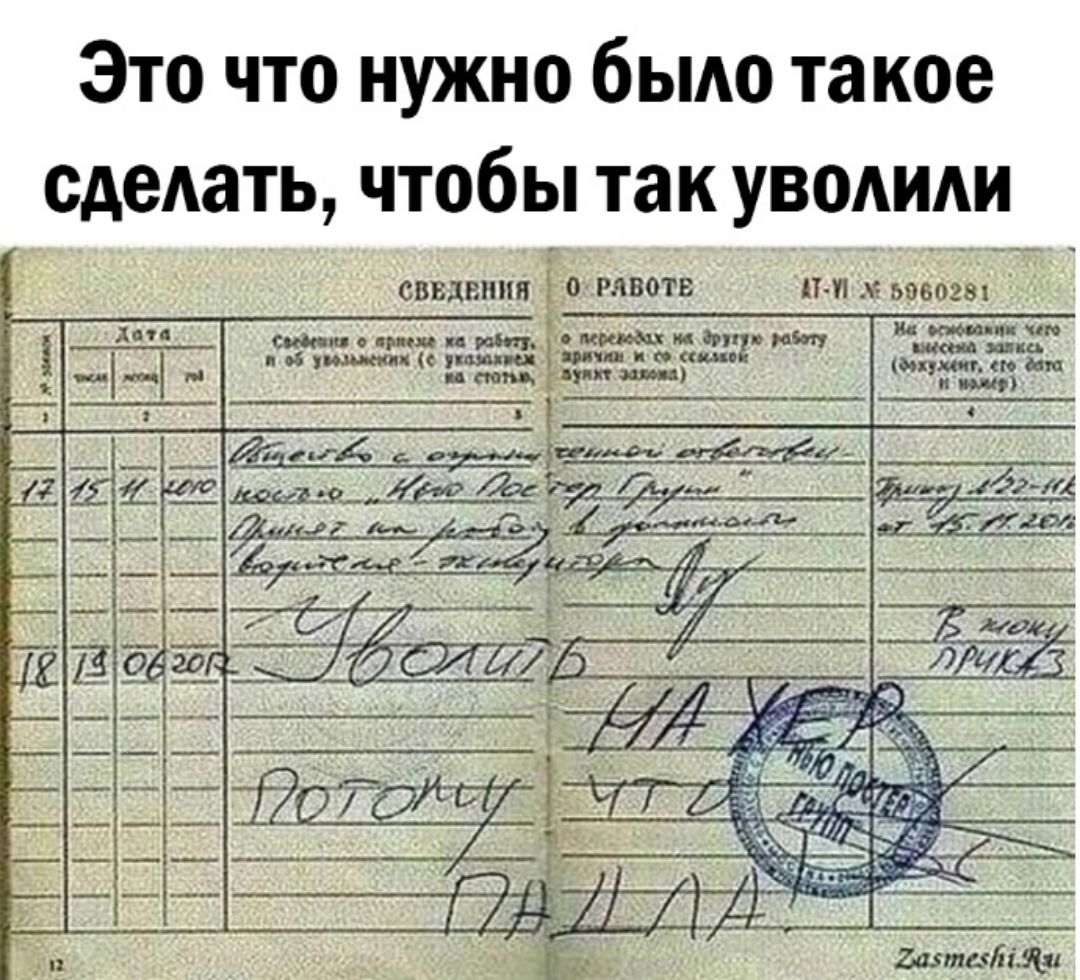 Это что нужно было такое
сделать, чтобы так уволили
СВЕДЕНИЯ О РАБОТЕ АТ-VI № 5960281
№ записи
Дата
число месяц год
Сведения о приеме на работу, о переводах на другую работу
и об увольнении (с указанием причин и со ссылкой
на статью, пункт закона)
На основании чего
внесена запись
(документ, его дата
и номер)
1 2 3 4
Общество с ограниченной ответствен-
17 15 11 2010 ностью „Нью Постер Групп" Приказ №22-НК
Принят на работу в должности от 15.11.2010
водителя-экспедитора
В жопу
18 19 06 2012 Уволить ПРИКАЗ
НАХЕР
ПОТОМУ ЧТО
ПАДЛА.
НЬЮ ПОСТЕР
ГРУПП
12
Zasmeshi.Ru